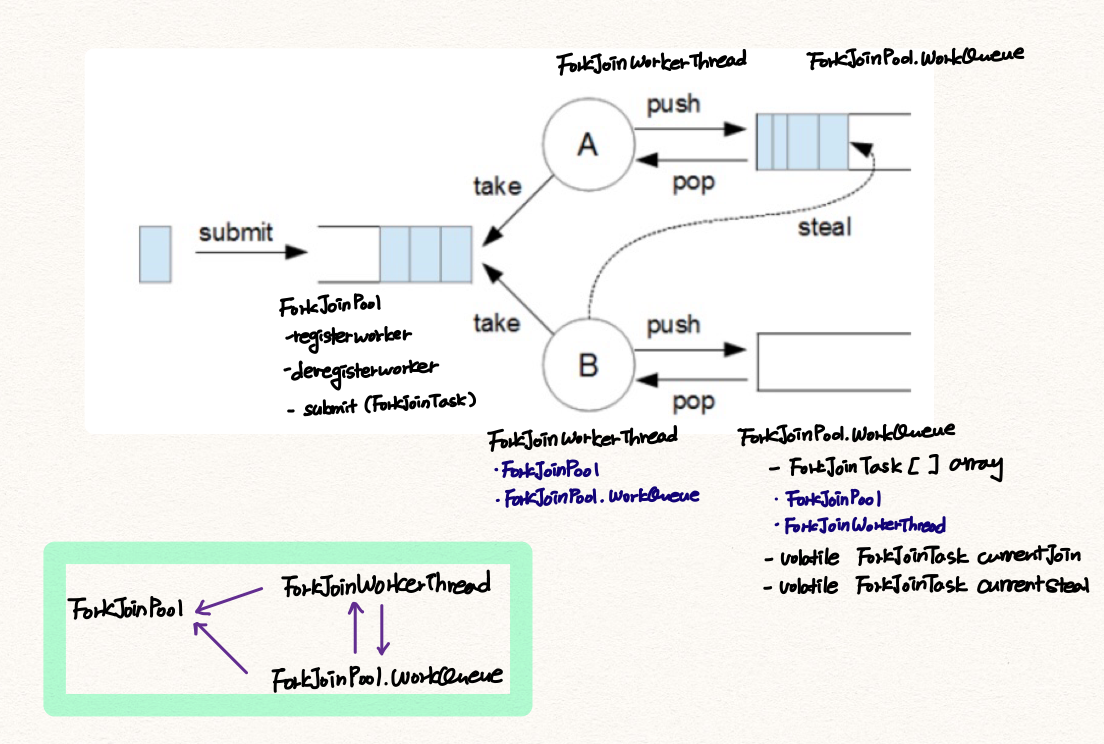 ForkJoinWorkerThread
ForkJoinPool.WorkQueue
push
A
pop
take
steal
submit
ForkJoinPool
-registerworker
-deregisterworker
- submit (ForkJoinTask)
take
push
B
pop
ForkJoinWorkerThread
· ForkJoinPool
· ForkJoinPool.WorkQueue
ForkJoinPool.WorkQueue
- ForkJoinTask [ ] array
· ForkJoinPool
· ForkJoinWorkerThread
- volatile ForkJoinTask currentJoin
- volatile ForkJoinTask currentSteal
ForkJoinWorkerThread
ForkJoinPool
ForkJoinPool.WorkQueue